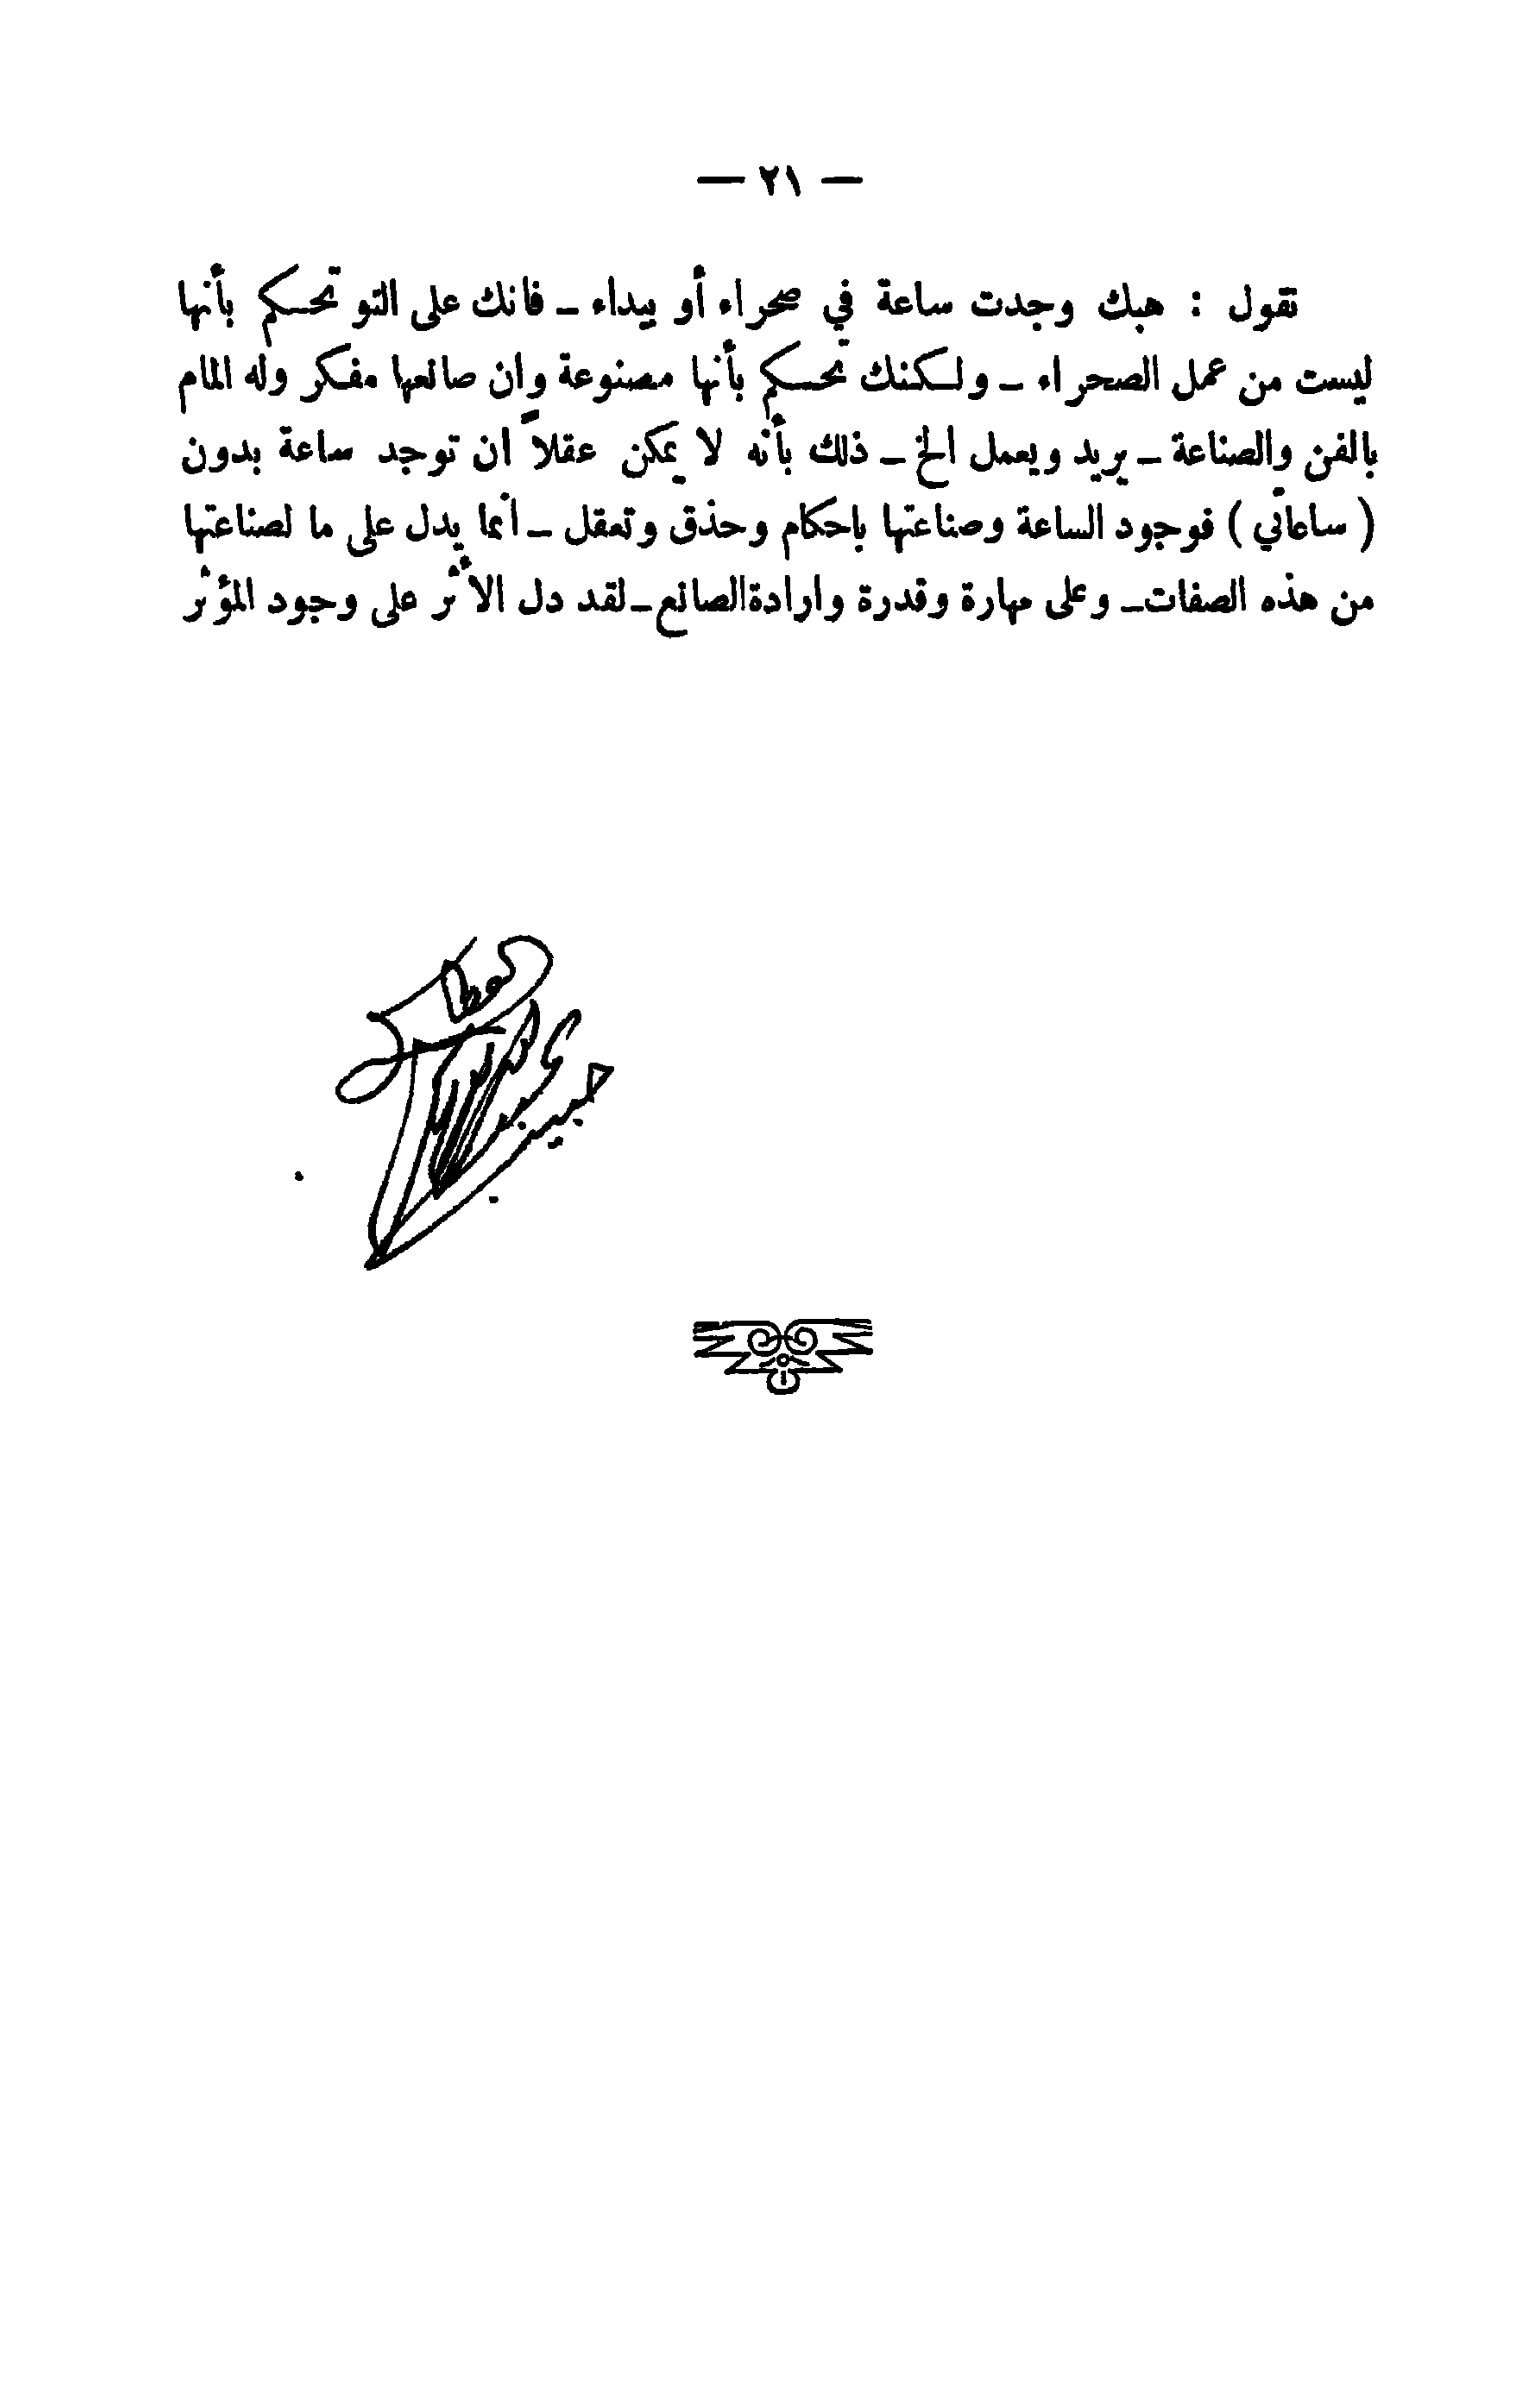 — ٢١ —
تقول : هبك وجدت ساعة في صحراء أو بيداء ـ فانك على التو تحكم بأنها
ليست من عمل الصحراء ـ ولكنك تحكم بأنها مصنوعة وان صانعها مفكر وله المام
بالفن والصناعة ـ يريد ويعمل الخ ـ ذلك بأنه لا يمكن عقلاً ان توجد ساعة بدون
( ساعاتي ) فوجود الساعة وصناعتها باحكام وحذق وتعقل ـ انما يدل على ما لصناعتها
من هذه الصفات ـ وعلى مهارة وقدرة وارادة الصانع ـ لقد دل الاثر على وجود المؤثر